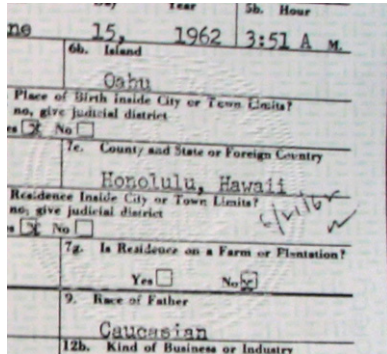 Year 5b. Hour
ne 15, 1962 3:51 A M.
6b. Island
Oahu
Place of Birth Inside City or Town Limits?
no, give judicial district
es No
7e. County and State or Foreign Country
Honolulu, Hawaii
Residence Inside City or Town Limits?
no, give judicial district
No
7g. Is Residence on a Farm or Plantation?
Yes No
9. Race of Father
Caucasian
12b. Kind of Business or Industry